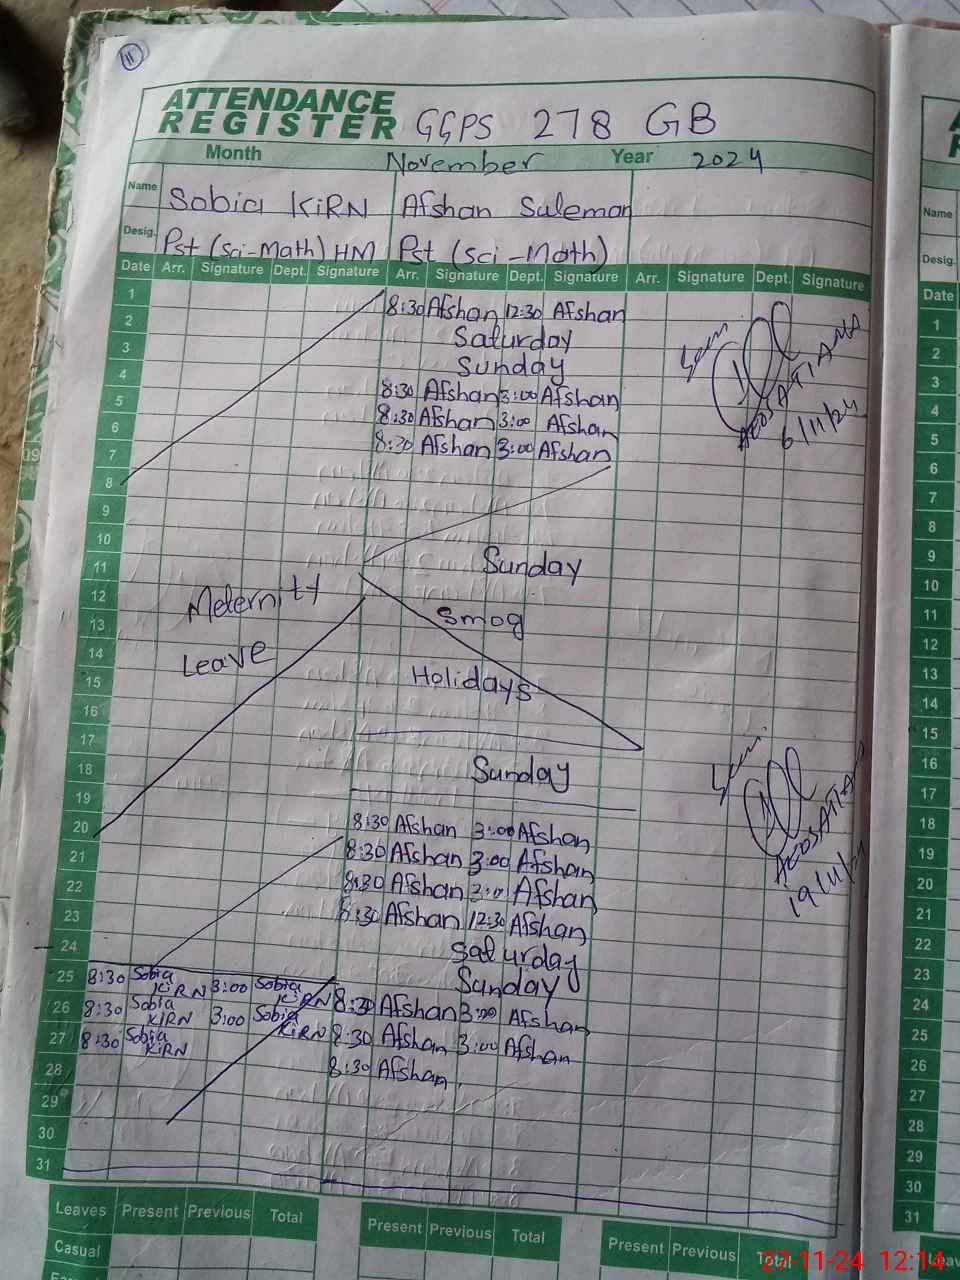 11
ATTENDANCE
REGISTER GGPS 278 GB
Month November Year 2024
Name Sobia KiRN Afshan Suleman
Desig. Pst (sci-Math) HM Pst (sci-Math)
Date Arr. Signature Dept. Signature Arr. Signature Dept. Signature Arr. Signature Dept. Signature
1 8:30 Afshan 12:30 Afshan
2 Saturday
3 Sunday
4 8:30 Afshan 3:00 Afshan
5 8:30 Afshan 3:00 Afshan
6 8:30 Afshan 3:00 Afshan
7
8
9
10 Sunday
11
12 Meternity Smog
13
14 Leave Holidays
15
16
17 Sunday
18
19 8:30 Afshan 3:00 Afshan
20 8:30 Afshan 3:00 Afshan
21 8:30 Afshan 3:00 Afshan
22 8:30 Afshan 12:30 Afshan
23 Saturday
24 Sunday
25 8:30 Sobia KiRN 3:00 Sobia KiRN 8:30 Afshan 3:00 Afshan
26 8:30 Sobia KIRN 3:00 Sobia KiRN 8:30 Afshan 3:00 Afshan
27 8:30 Sobia KiRN 8:30 Afshan
28
29
30
31
6/11/24
19/11/24
Leaves Present Previous Total Present Previous Total Present Previous Total
Casual
Name
Desig.
Date
1
2
3
4
5
6
7
8
9
10
11
12
13
14
15
16
17
18
19
20
21
22
23
24
25
26
27
28
29
30
31
27-11-24 12:14